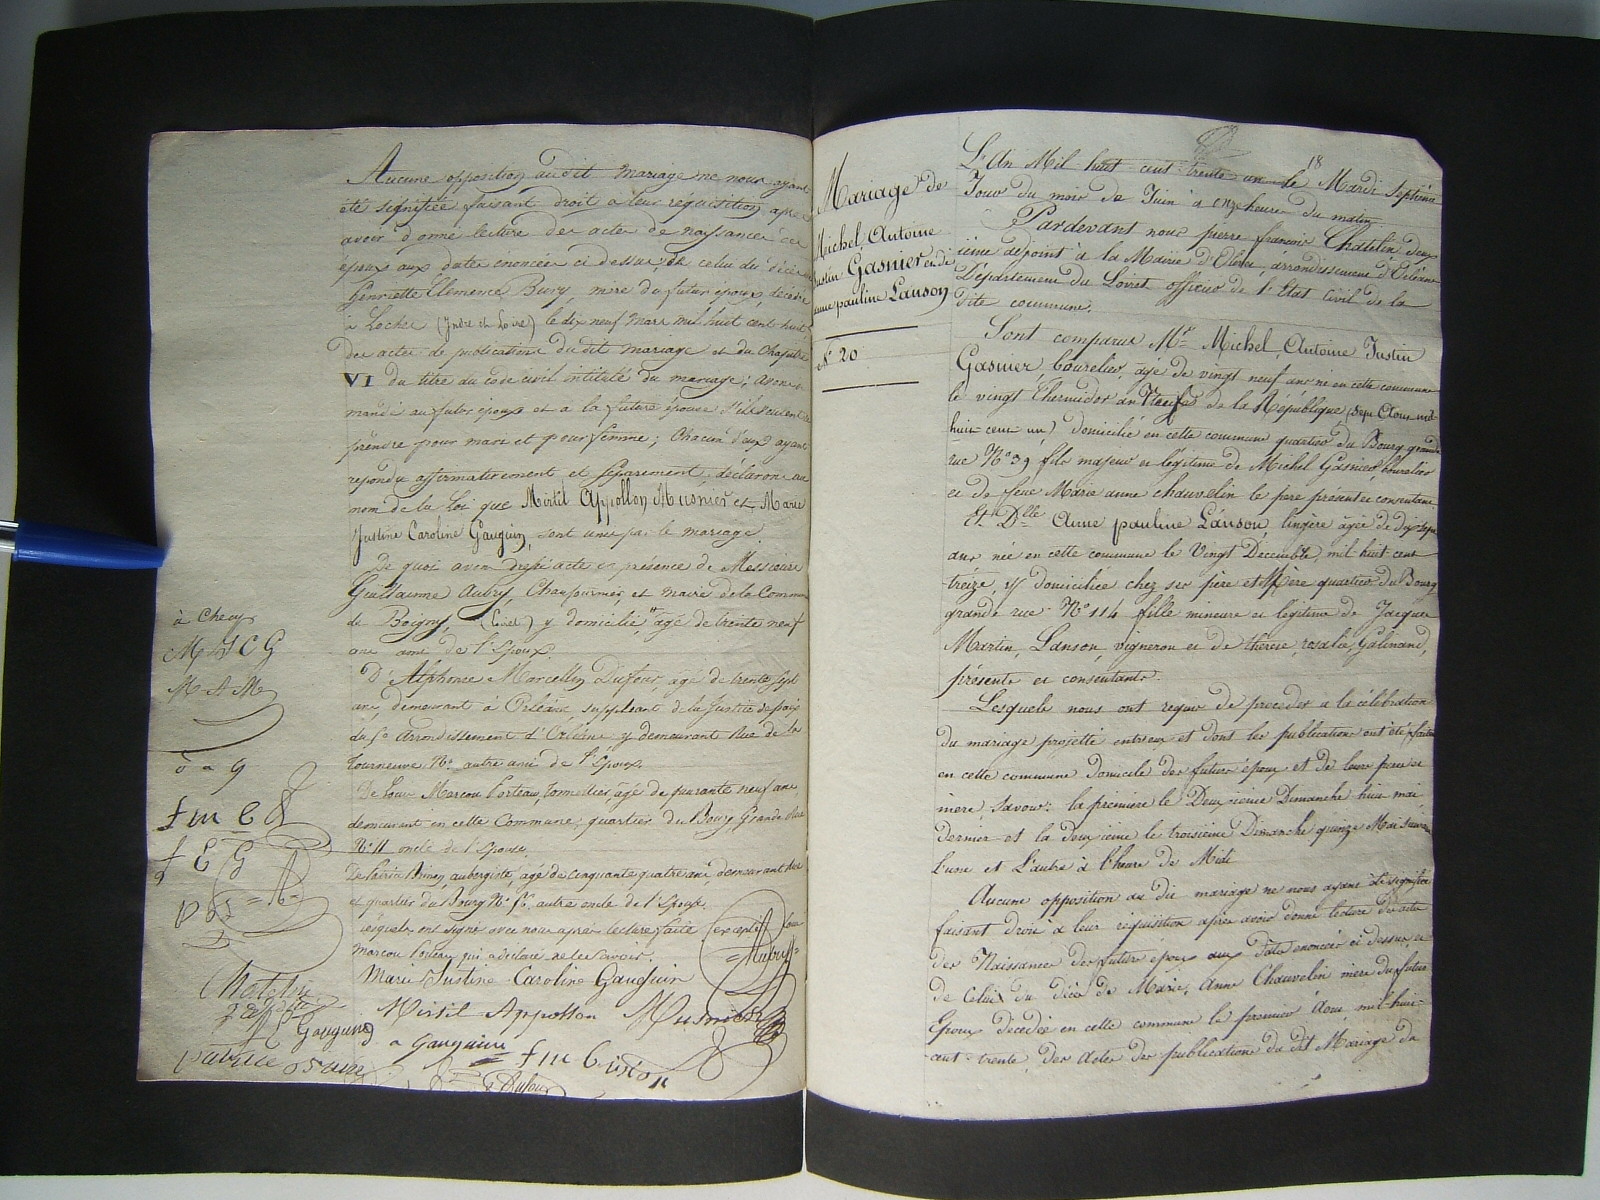 Aucune opposition audit mariage ne nous ayant
été signifiée faisant droit a leur réquisition, apres
avoir donné lecture des actes de naissances des
époux aux dates enoncée ci dessus, de celui du décès
henriette Clémence Bury, mere du futur époux, décédée
à Loches (Indre et Loire) le dix neuf mars mil huit cent huit
des actes de publications dudit mariage et du Chapitre
VI du titre du code civil intitulé du mariage; avons
mandé au futur époux et a la future épouse s'ils veulent se
prendre pour mari et pour femme; chacun d'eux ayant
repondu affirmativement et séparement, déclarons au
nom de la loi que Mirtil Appollon Musnier et Marie
Justine Caroline Gauguin, sont unis par le mariage.
De quoi avons dressé acte en présence de Messieurs
Guillaume Aubry, Chaufournier, et maire de la Commune
de Boigny, (Loiret) y domicilié, agé de trente neuf
ans ami de l'Epoux.
D'Alphonse Marcellin Dufour, agé de trente sept
ans, demeurant à Orléans, suppléant de la Justice de paix
du 5e Arrondissement d'Orléans y demeurant Rue de la
tourneuve No. autre ami de l'Epoux.
De Louis Marcou Porteau, tonnellier, agé de quarante neuf ans
demeurant en cette Commune, quartier du Bourg Grande Rue
No. 11 oncle de l'Epouse.
aubergiste, âgé de cinquante quatre ans, demeurant
et quartier du Bourg No. autre oncle de l'Epoux.
Lesquels ont signé avec nous apres lecture faite (excepté Louis
marcou Porteau qui a déclaré ne le savoir.
Marie Justine Caroline Gauguin
Mirtil Appollon Musnier
a Gauguin
Dufour
à Checy
M J C G
M A M
f m C
f E G
Chatelin
Gauguin
Mariage de
Michel, Antoine
Justin Gasnier et de
anne pauline Lanson
No. 20
18
L'An Mil huit cent trente un le Mardi Septième
Jour du mois de Juin à onze heures du matin
Pardevant nous pierre francois Chatelin deux
ième adjoint à la Mairie d'Olivet, arrondissement d'Orléans
Département du Loiret officier de l'Etat civil de la
dite commune.
Sont comparus Mr. Michel, Antoine Justin
Gasnier, bourelier, âgé de vingt neuf ans né en cette commune
le vingt Thermidor an neuf de la République (sept Aout mil
huit cent un) domicilié en cette commune quartier du Bourg grande
rue No 39 fils majeur et légitime de Michel Gasnier, bourelier
et de feue Marie anne chauvelin le pere présent et consentant
Et Dlle Anne pauline Lanson, lingère âgée de dix sept
ans née en cette commune le Vingt Décembre, mil huit cent
treize, y domiciliée chez ses père et Mère quartier du Bourg
grande rue No 114 fille mineure et légitime de Jacques
Martin, Lanson, vigneron et de therese, rosalie, Galinand,
présents et consentants.
Lesquels nous ont requis de procéder a la célébration
du mariage projetté entre eux et dont les publications ont été faites
en cette commune domicile des futurs époux et de leurs peres et
mère, savoir: la première le Deuxième Dimanche huit mai
dernier et la deuxième le troisième Dimanche quinze Mai suivant
L'une et L'autre à l'heure de Midi
Aucune opposition au dit mariage ne nous ayant été signifiée
faisant droit à leur réquisition après avoir donné lecture des actes
des Naissances des futurs époux aux dates enoncées ci dessus, et
de Celui du décès de Marie, Anne Chauvelin mere du futur
Epoux décédée en cette commune le premier Aout mil huit
cent trente, des actes des publication du dit Mariage du